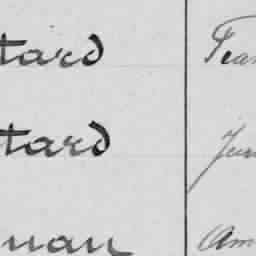 tard Fran
tard Jun
man Am